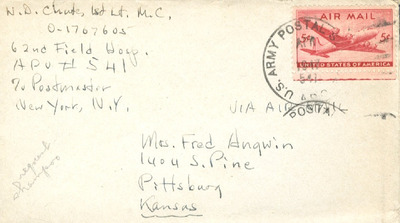 W.D. Chute, 1st Lt. M.C.
O-1707605
62nd Field Hosp.
APO # 541
℅ Postmaster
New York, N.Y.
AIR MAIL
5¢ 5¢
UNITED STATES OF AMERICA
U.S. ARMY POSTAL
541
VIA AIR MAIL
Mrs. Fred Angwin
1404 S. Pine
Pittsburg
Kansas
Shampoo